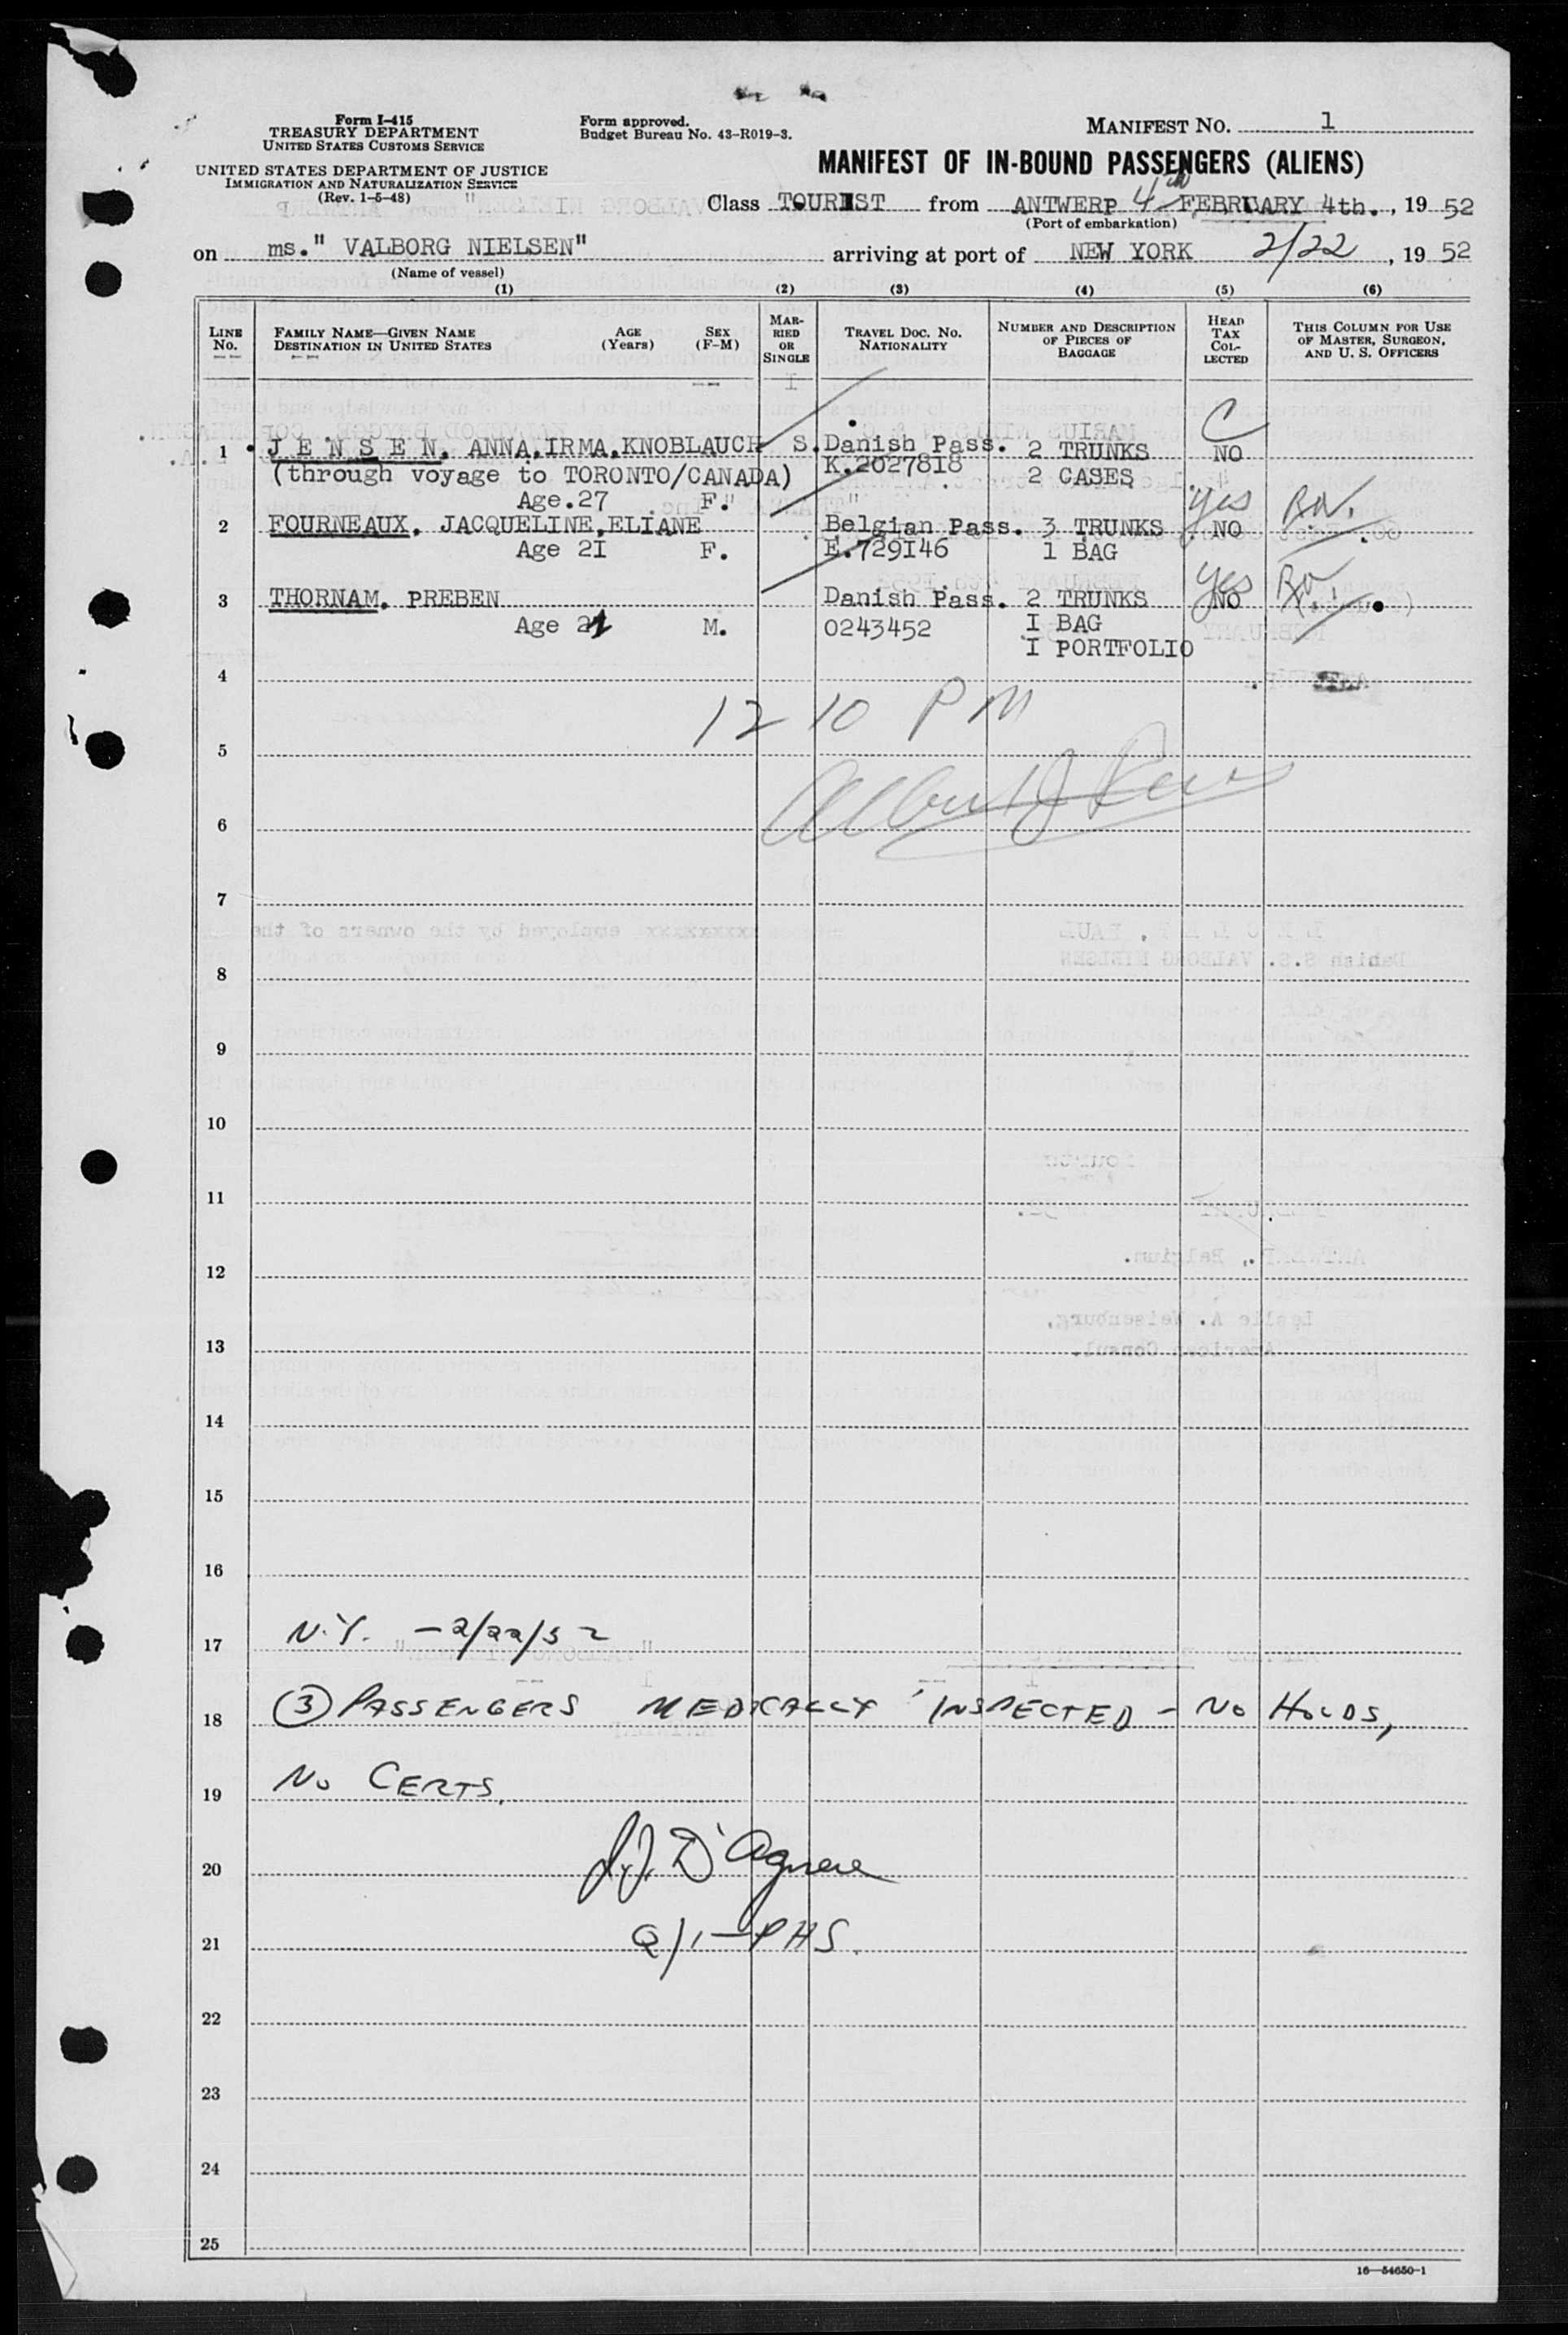 Form I-415
TREASURY DEPARTMENT
UNITED STATES CUSTOMS SERVICE
UNITED STATES DEPARTMENT OF JUSTICE
IMMIGRATION AND NATURALIZATION SERVICE
(Rev. 1-5-48)
Form approved.
Budget Bureau No. 43-R019-3.
MANIFEST NO. 1
MANIFEST OF IN-BOUND PASSENGERS (ALIENS)
Class TOURIST from ANTWERP 4th FEBRUARY 4th., 19 52
(Port of embarkation)
on ms." VALBORG NIELSEN" arriving at port of NEW YORK 2/22, 19 52
(Name of vessel)
(1) (2) (3) (4) (5) (6)
LINE NO.
FAMILY NAME—GIVEN NAME
DESTINATION IN UNITED STATES
AGE (Years)
SEX (F-M)
MARRIED OR SINGLE
TRAVEL DOC. NO.
NATIONALITY
NUMBER AND DESCRIPTION OF PIECES OF BAGGAGE
HEAD TAX COLLECTED
THIS COLUMN FOR USE OF MASTER, SURGEON, AND U. S. OFFICERS
C
1 J E N S E N. ANNA.IRMA.KNOBLAUCH S. Danish Pass. 2 TRUNKS NO
(through voyage to TORONTO/CANADA) K.2027818 2 CASES
Age.27 F." " yes
2 FOURNEAUX. JACQUELINE,ELIANE Belgian Pass. 3 TRUNKS NO
Age 2I F. E.729I46 1 BAG
yes
3 THORNAM. PREBEN Danish Pass. 2 TRUNKS NO
Age 21 M. 0243452 I BAG
I PORTFOLIO
4
12 10 PM
5
6
7
8
9
10
11
12
13
14
15
16
17 N.Y. - 2/22/52
18 (3) PASSENGERS MEDICALLY INSPECTED - NO HOLDS,
19 NO CERTS.
20
21 Q/1-PHS.
22
23
24
25
16—54650-1